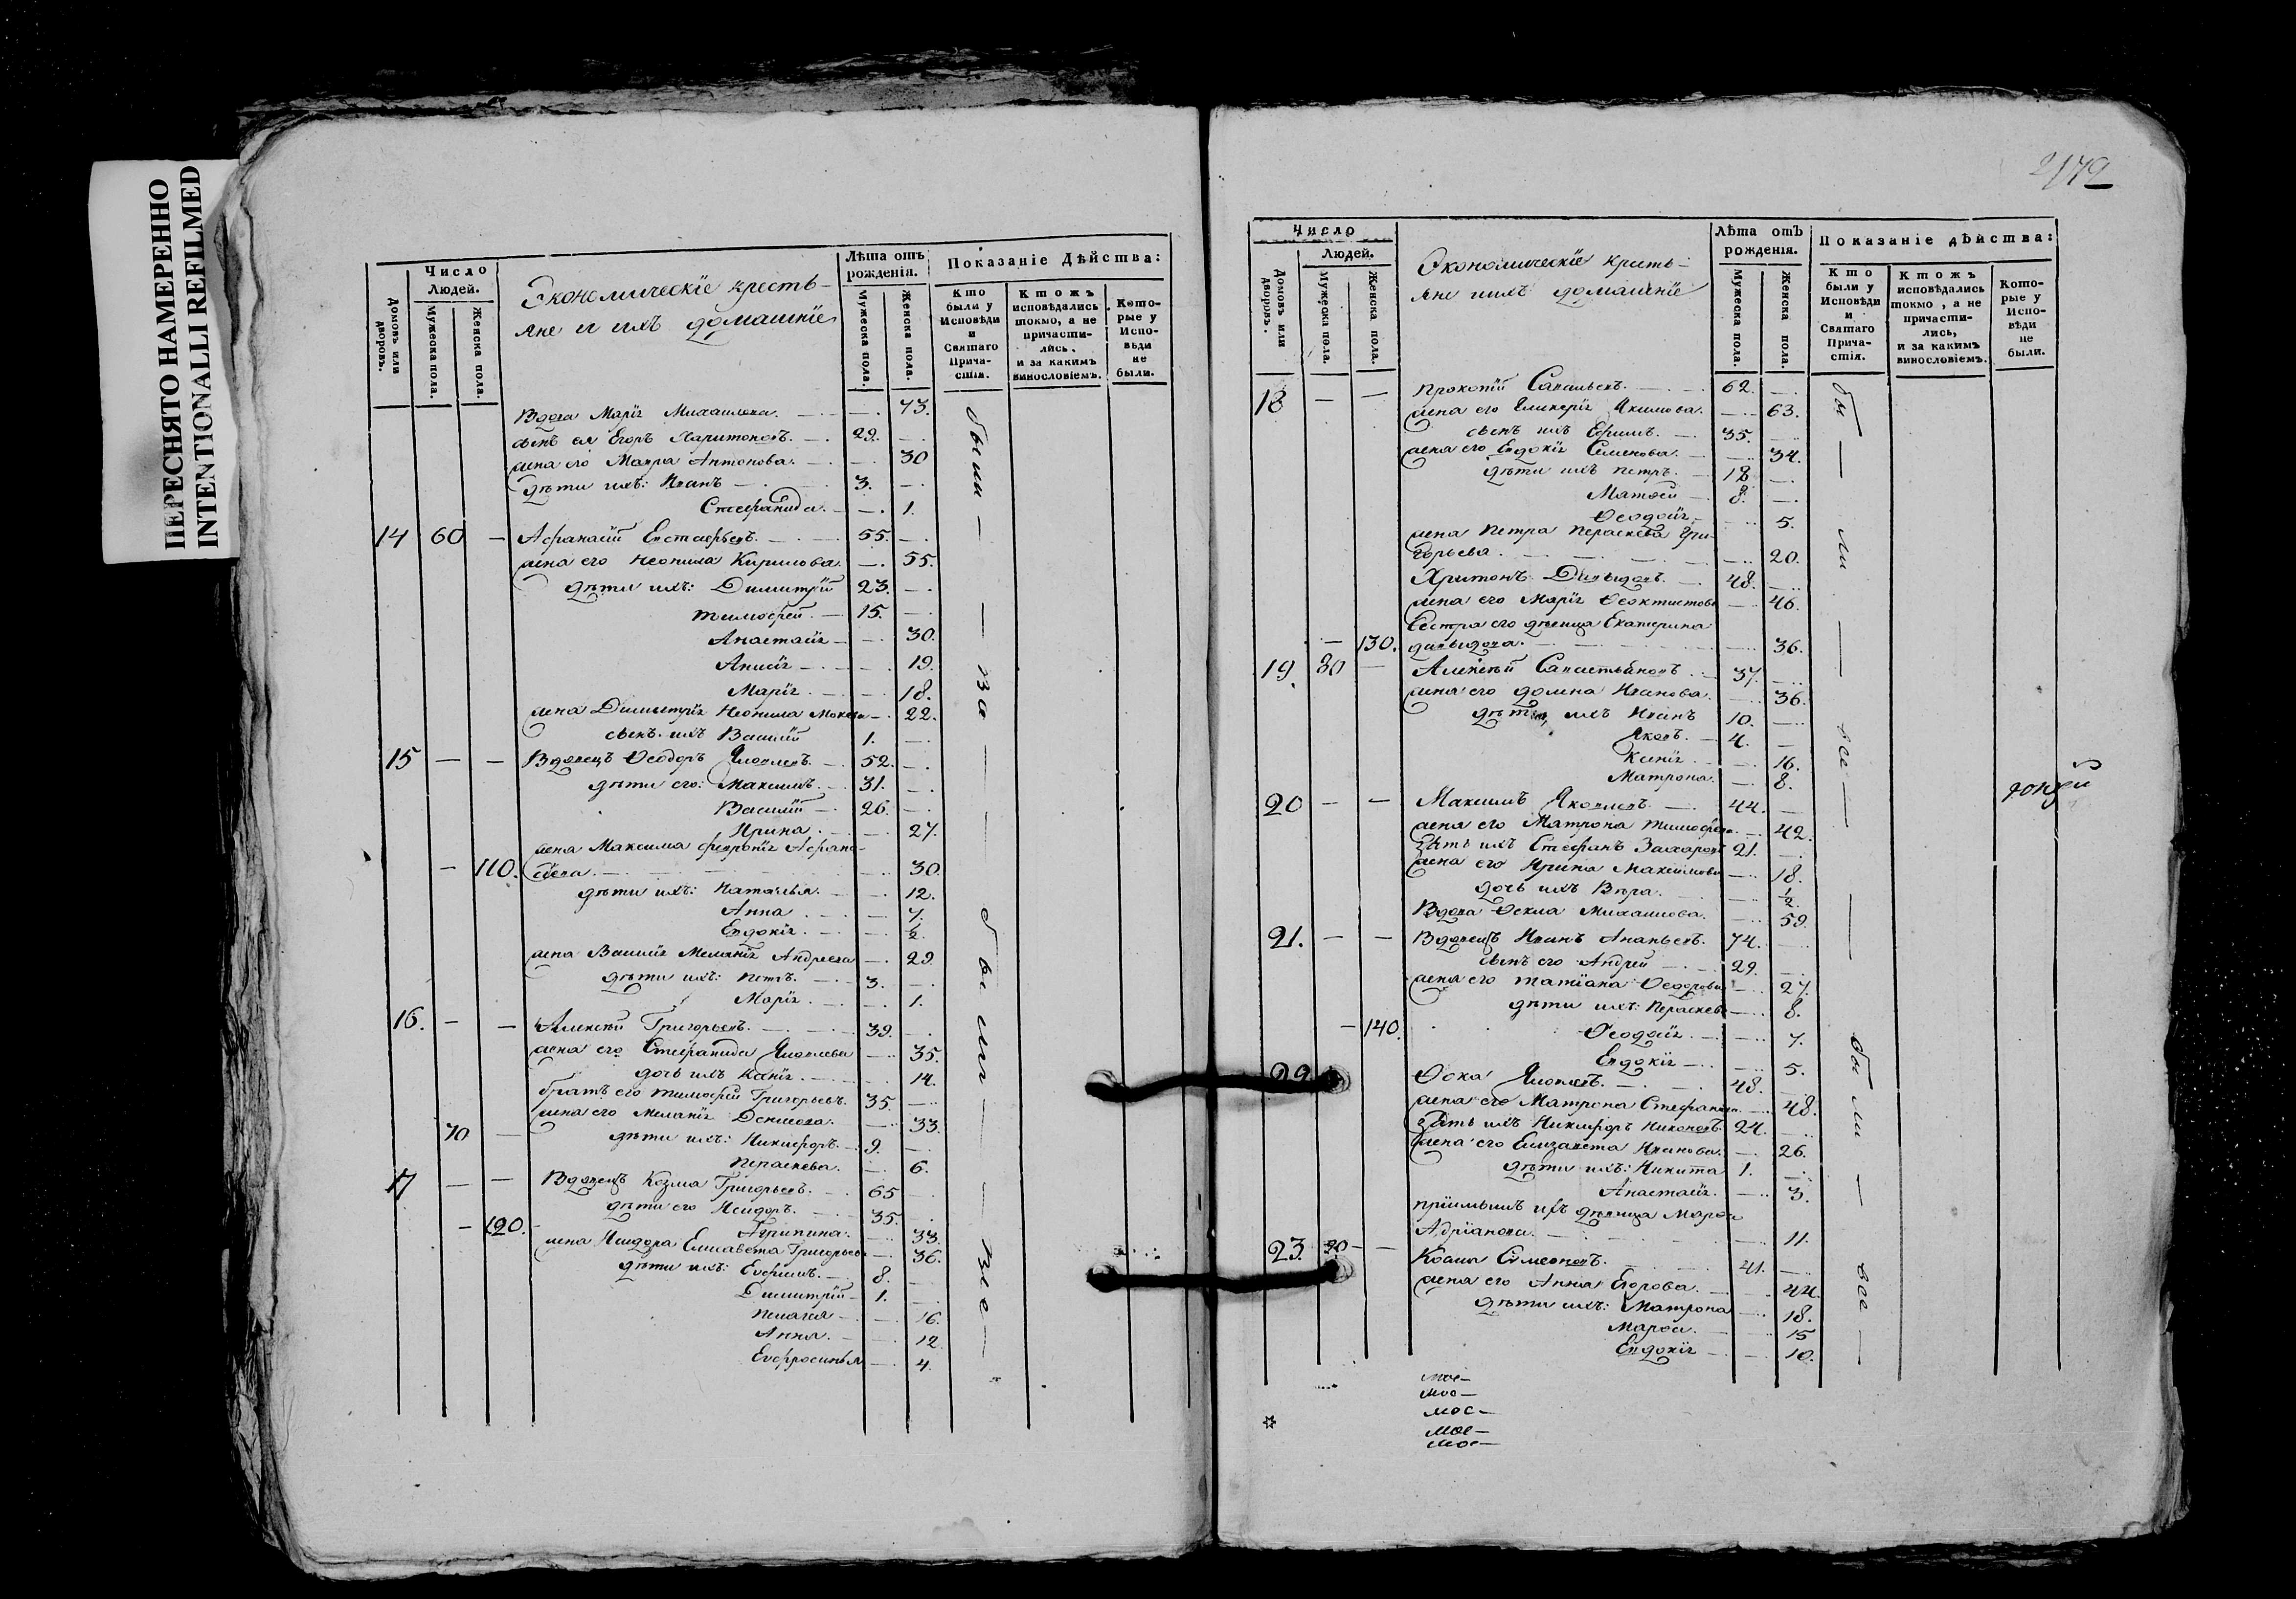 ПЕРЕСНЯТО НАМЕРЕННО
INTENTIONALLI REFILMED
Число
Людей.
Домовъ или дворовъ.
Мужеска пола.
Женска пола.
Экономическіе кресть-
яне и ихъ домашніе
Лѣта отъ рожденія.
Мужеска пола.
Женска пола.
Показаніе Дѣйства:
Кто были у Исповѣди и Святаго Причастія.
Ктожъ исповѣдались токмо, а не причастились, и за какимъ винословіемъ.
Которые у Исповѣди не были.
Вдова Маріꙗ Михаилова. — 73.
сынъ ея Егоръ Харитоновъ. 29. —
жена его Мавра Антонова. — 30
дѣти ихъ: Иванъ — 3. —
Стефанида. — 1.
14 60 — Афанасій Евстафьевъ. 55. —
жена его Неонила Кирилова. — 55.
дѣти ихъ: Димитрій 23. —
Тимофей. — 15. —
Анастасіꙗ — 30.
Анисіꙗ — 19.
Маріꙗ. — 18.
жена Димитріꙗ Неонила — 22.
сынъ ихъ Василій 1. —
15 — — Вдовецъ Ѳеодоръ Яковлевъ. 52. —
дѣти его: Максимъ. 31. —
Василій — 26. —
Ирина. — 27.
жена Максима Февроніꙗ Афана-
— 110. сьева. — 30
дѣти ихъ: Наталья. — 12.
Анна. — 7.
Евдокіꙗ. — ½.
жена Василіꙗ Меланіꙗ Андреева — 29.
дѣти ихъ: Петръ. — 3. —
Маріꙗ. — 1.
16. — — Алексѣй Григорьевъ. — 39. —
жена его Стефанида Яковлева — 35.
дочь ихъ — 14.
братъ его Тимофей Григорьевъ. 35. —
жена его Меланіꙗ Денисова. — 33.
70 — дѣти ихъ: Никифоръ. — 9. —
Параскева. — 6.
17 — — Вдовецъ Козма Григорьевъ. 65 —
дѣти его Исидоръ. 35. —
— 120. Агрипина. — 33.
жена Исидора Елисавета Григорьева — 36.
дѣти ихъ: Евфимъ. — 8. —
Димитрій — 1. —
Пелагея — 16.
Анна. — 12
Евфросинья — 4.
были — — ва — — были — — все —
2179
Число
Людей.
Домовъ или дворовъ.
Мужеска пола.
Женска пола.
Экономическіе кресть-
яне и ихъ домашніе
Лѣта отъ рожденія.
Мужеска пола.
Женска пола.
Показаніе дѣйства:
Кто были у Исповѣди и Святаго Причастія.
Ктожъ исповѣдались токмо, а не причастились, и за какимъ винословіемъ.
Которые у Исповѣди не были.
18 — — Прокопій Савельевъ. 62. —
жена его Гликеріꙗ Якимова. — 63.
сынъ ихъ Ефимъ. — 35. —
жена его Евдокіꙗ Семенова. — 34.
дѣти ихъ Петръ. — 18 —
Матвей — 8. —
Ѳеодосіꙗ. — 5.
жена Петра Параскева Гри-
горьева. — 20.
Давыдовъ. — 48. —
жена его Маріꙗ Ѳеоктистова — 46.
Сестра его девица Екатерина
— 130. давыдова. — 36.
19. 80 — Алексѣй Савастьяновъ. — 37. —
жена его Домна Иванова. — 36.
дѣти ихъ Иванъ 10. —
Яковъ. — 4. —
Ксеніꙗ. — 16.
Матрона. — 8.
20 — — Максимъ Яковлевъ. — 44. —
жена его Матрона Тимофеева. — 42.
зять ихъ Стефанъ Захаровъ 21. —
жена его Ирина Максимова — 18.
дочь ихъ Вера. — ½.
Вдова Ѳекла Михаилова. — 59.
21. — — Вдовецъ Иванъ Ананьевъ. 74. —
сынъ его Андрей — 29. —
жена его Татіана Ѳедорова — 27.
дѣти ихъ: Параскева — 8.
— 140. Ѳеодосіꙗ. — 7.
Евдокіꙗ — 5.
22 Ѳока Яковлевъ. — 48. —
жена его Матрона Стефанова — 48.
Зять ихъ Никифоръ 24. —
жена его Елизавета Иванова. — 26.
дѣти ихъ: Никита 1. —
Анастасіꙗ. — 3.
девица Марѳа
Адріанова. — 11.
23. 90 — — Косма Симеоновъ. 41. —
жена его Анна Егорова. — 44.
дѣти ихъ: Матрона — 18.
Марѳа. — 15
Евдокіꙗ — 10.
бы — ли — все — — были — все —
мое—
мое—
мое—
мое—
мое—